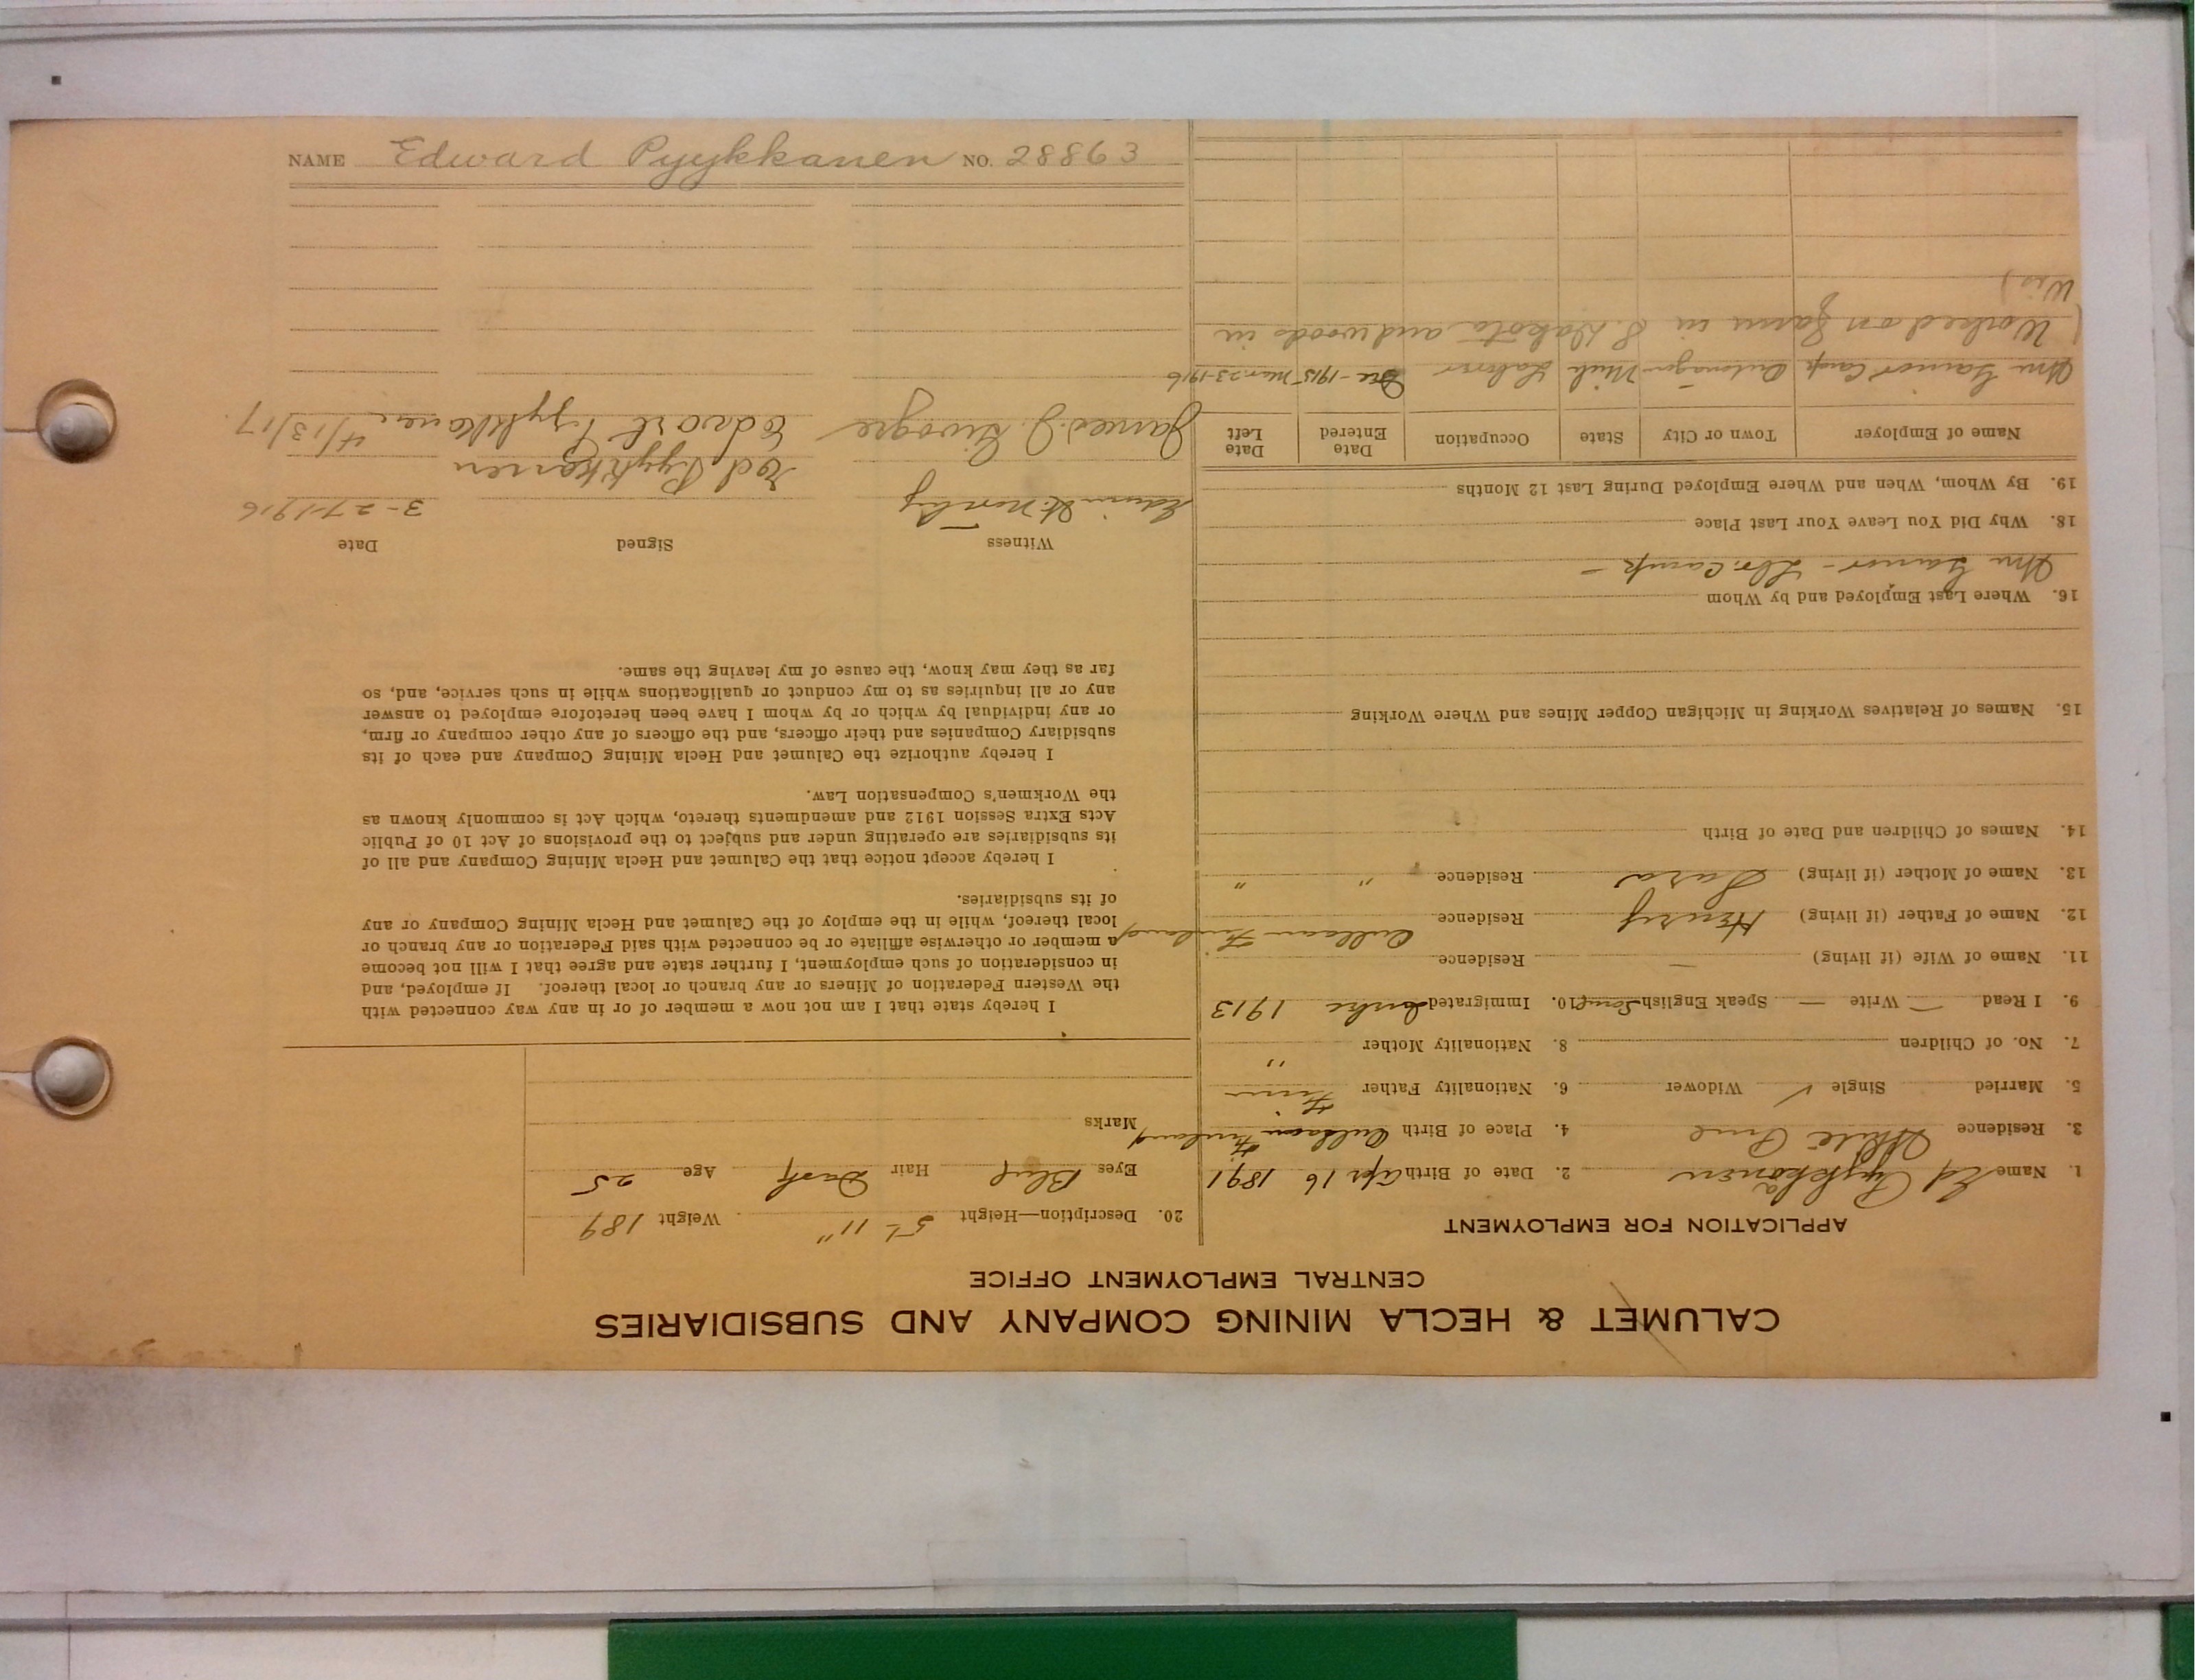 CALUMET & HECLA MINING COMPANY AND SUBSIDIARIES
CENTRAL EMPLOYMENT OFFICE
APPLICATION FOR EMPLOYMENT
1. Name Ed Pyykkanen 2. Date of Birth Apr 16 1891
3. Residence White Pine 4. Place of Birth Finland
5. Married Single ✓ Widower 6. Nationality Father Finn
7. No. of Children 8. Nationality Mother "
9. I Read — Write — Speak English Some 10. Immigrated 1913
11. Name of Wife (if living) — Residence
12. Name of Father (if living) Henry Residence Finland
13. Name of Mother (if living) Sara Residence " "
14. Names of Children and Date of Birth
15. Names of Relatives Working in Michigan Copper Mines and Where Working
16. Where Last Employed and by Whom
Camp —
18. Why Did You Leave Your Last Place
19. By Whom, When and Where Employed During Last 12 Months
Name of Employer Town or City State Occupation Date Entered Date Left
Camp Ontonagon Mich Labor Dec - 1915 Mar 23-1916
(Worked on farm in S. Dakota and woods in
Wis)
20. Description—Height 5'- 11" Weight 189
Eyes Blue Hair Dark Age 25
Marks
I hereby state that I am not now a member of or in any way connected with
the Western Federation of Miners or any branch or local thereof. If employed, and
in consideration of such employment, I further state and agree that I will not become
a member or otherwise affiliate or be connected with said Federation or any branch or
local thereof, while in the employ of the Calumet and Hecla Mining Company or any
of its subsidiaries.
I hereby accept notice that the Calumet and Hecla Mining Company and all of
its subsidiaries are operating under and subject to the provisions of Act 10 of Public
Acts Extra Session 1912 and amendments thereto, which Act is commonly known as
the Workmen's Compensation Law.
I hereby authorize the Calumet and Hecla Mining Company and each of its
subsidiary Companies and their officers, and the officers of any other company or firm,
or any individual by which or by whom I have been heretofore employed to answer
any or all inquiries as to my conduct or qualifications while in such service, and, so
far as they may know, the cause of my leaving the same.
Witness Signed Date
Ed Pyykkanen 3-27-1916
James J. Edvart Pyykkanen 4/13/17
NAME Edward Pyykkanen NO. 28863